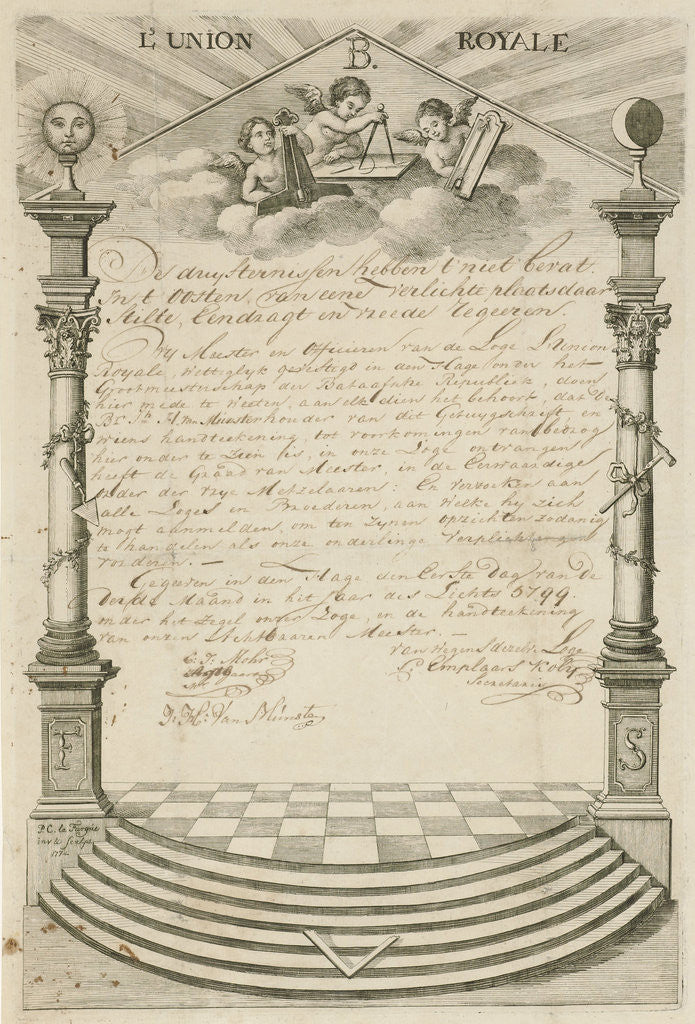 L'UNION B. ROYALE
De duysternissen hebben t' niet bevat.
In t' Oosten, van eene Verlichte plaats daar
Stilte, Eendragt en vreede regeeren.
Wy Meester en Officieren van de Loge L'Union
Royale, Wettiglyk gevestigd in den Hage onder het
Grootmeesterschap der Bataafsche Republiek, doen
hier mede te weeten, aan elk dien het behoort, dat de
Br. J. H. van Munster houder van dit Getuygschrift, en
wiens handteekening, tot voorkomingen van bedrog
hier onder te zien is, in onze Loge ontvangen
heeft de Graad van Meester, in de Eerwaardige
order der vrye Metzelaaren: En verzoeken aan
alle Loges en Broederen, aan welke hy zich
mogt aanmelden, om ten zynen opzichten zodanig
te handelen als onze onderlinge Verplichtingen
vorderen. —
Gegeeven in den Hage den Eerste Dag van de
Derde Maand in het Jaar des Lichts 5799.
onder het Zegel onzer Loge, en de handteekening
van onzen Achtbaaren Meester. —
van Wegens dezelve Loge
C. J. Mohr
Secretaris
J. H. Van Munster
F S
P. C. la Fargue
inv & Sculps.